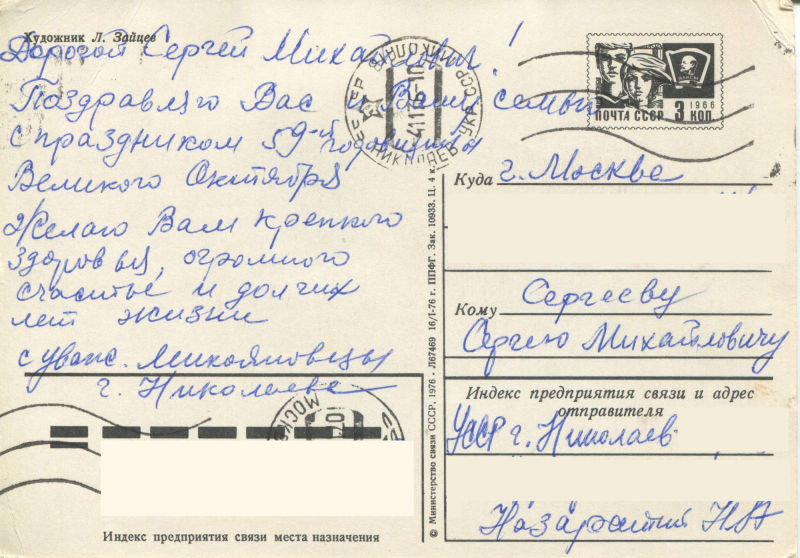 Художник Л. Зайцев
Дорогой Сергей Михайлович!
Поздравляю Вас и Вашу семью
с праздником 59-й годовщины
Великого Октября
Желаю Вам крепкого
здоровья, огромного
счастье и долгих
лет жизни
с уваж.
г. Николаев
СССР НИКОЛАЕВ УКР.ССР
41176-10
НИКОЛАЕВ
ВЛКСМ
1966
ПОЧТА СССР 3 КОП
Куда г. Москва
Кому Сергееву
Сергею Михайловичу
Индекс предприятия связи и адрес
отправителя
УССР г. Николаев
Н А
© Министерство связи СССР, 1976 - Л67469 16/I-76 г. ППФГ. Зак. 10933. Ц. 4 к.
МОСКВА
Индекс предприятия связи места назначения